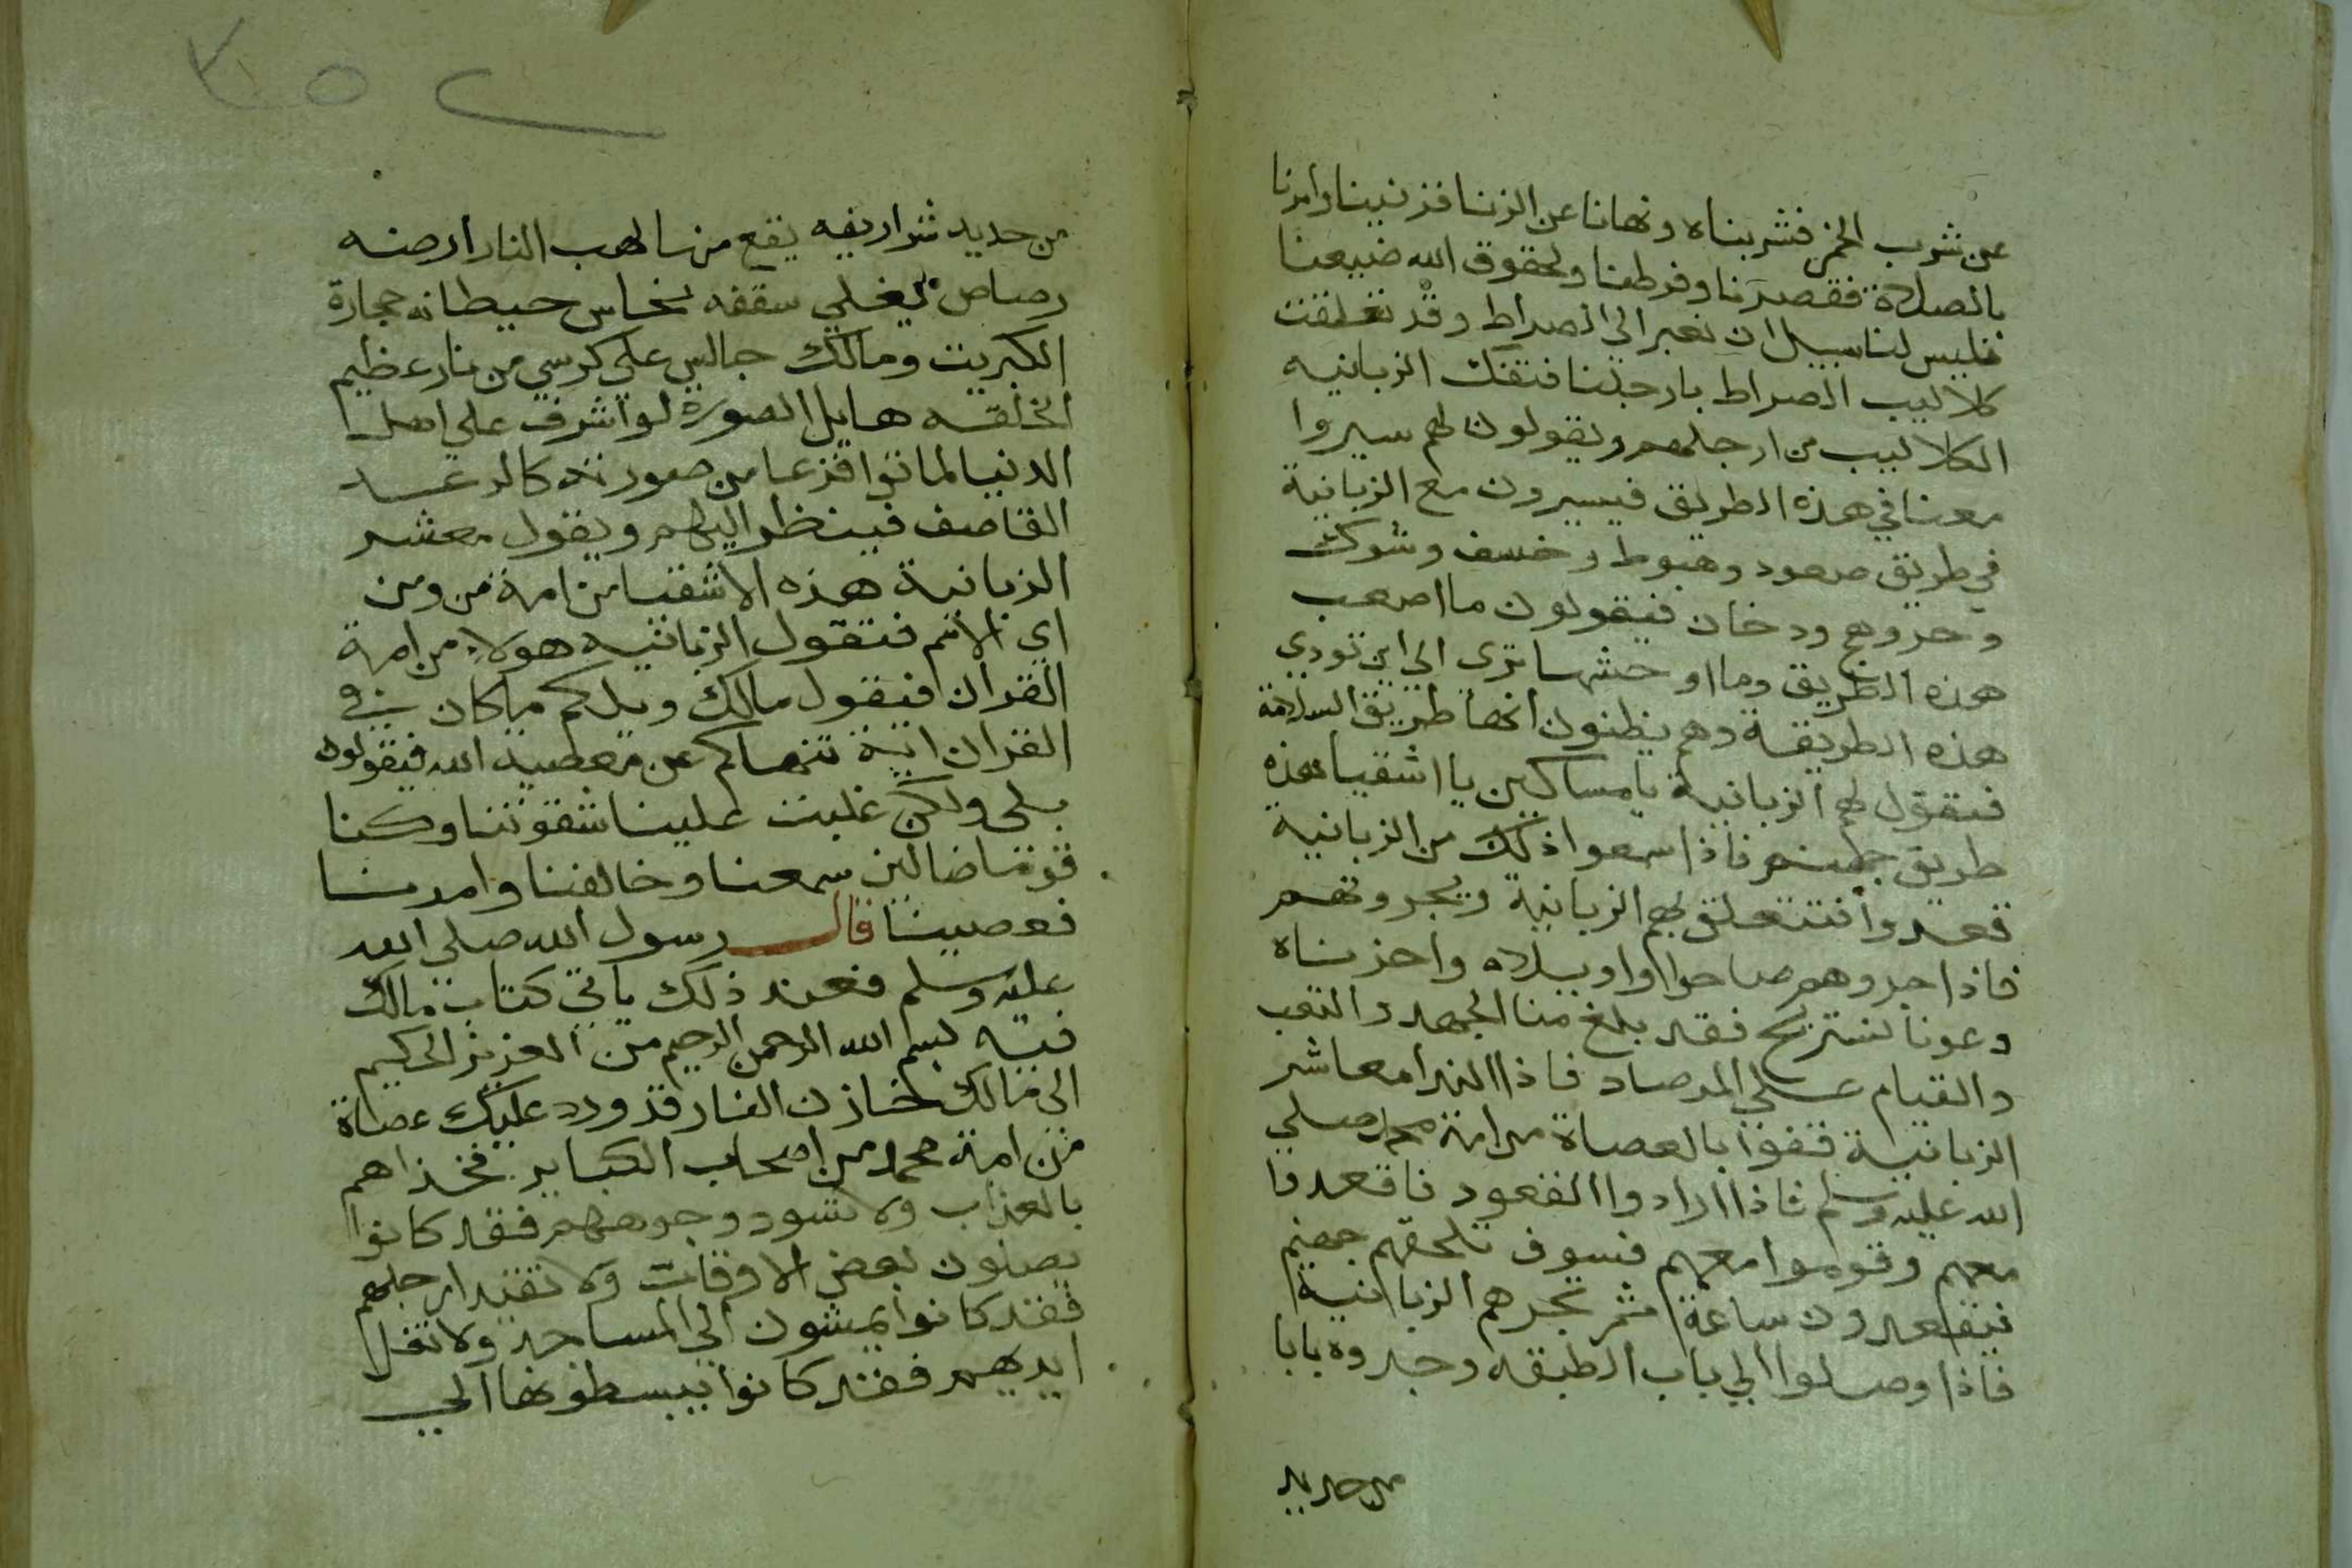 عن شرب الخمر فشربناه ونهانا عن الزنا فزنينا وامرنا
بالصلاة فقصرنا وفرطنا ولحقوق الله ضيعنا
فليس لنا سبيل ان نعبر الي الصراط وقد تعلقت
كلاليب الصراط بارجلنا فتفك الزبانيه
الكلاليب من ارجلهم ويقولون لهم سيروا
معنا في هذه الطريق فيسيرون مع الزبانية
في طريق صعود وهبوط وخسف وشوك
وحر ووهج ودخان فيقولون ما اصعب
هذه الطريق وما اوحشها ترى الي اين تودي
هذه الطريقة وهم يظنون انها طريق السلامة
فيقول لهم الزبانية يا مساكين يا اشقيا هذه
طريق جهنم فاذا سمعوا ذلك من الزبانية
قعدوا فتتعلق بهم الزبانية ويجروهم
فاذا جروهم صاحوا واويلاه واحزناه
دعونا نستريح فقد بلغ منا الجهد والتعب
والقيام علي المرصاد فاذا الندا معاشر
الزبانية قفوا بالعصاة من امة محمد صلي
الله عليه وسلم فاذا ارادوا القعود فاقعدوا
معهم وقوموا معهم فسوف تلحقهم جهنم
فيقعدون ساعة ثم تجرهم الزبانية
فاذا وصلوا الي باب الطبقه وجدوه بابا
من حديد
٢٥٧
من حديد شراريفه يقع منها لهب النار ارضه
رصاص يغلي سقفه نحاس حيطانه حجارة
الكبريت ومالك جالس علي كرسي من نار عظيم
الخلقه هايل الصورة لو اشرف علي اهل
الدنيا لماتوا فزعا من صورته كالرعد
القاصف فينظر اليهم ويقول معشر
الزبانية هذه الاشقيا من امة من ومن
اي الامم فتقول الزبانيه هولاء من امة
القران فيقول مالك ويلكم ما كان في
القران اية تنهاكم عن معصية الله فيقولون
بلى ولكن غلبت علينا شقوتنا وكنا
قوما ضالين سمعنا وخالفنا وامرنا
فعصينا قال رسول الله صلي الله
عليه وسلم فعند ذلك ياتي كتاب مالك
فيه بسم الله الرحمن الرحيم من العزيز الحكيم
الي مالك خازن النار قد ورد عليك عصاة
من امة محمد من اصحاب الكباير فخذاهم
بالعذاب ولا تسود وجوههم فقد كانوا
يصلون بعض الاوقات ولا تقيد ارجلهم
فقد كانوا يمشون الي المساجد ولا تغل
ايديهم فقد كانوا يبسطونها الي